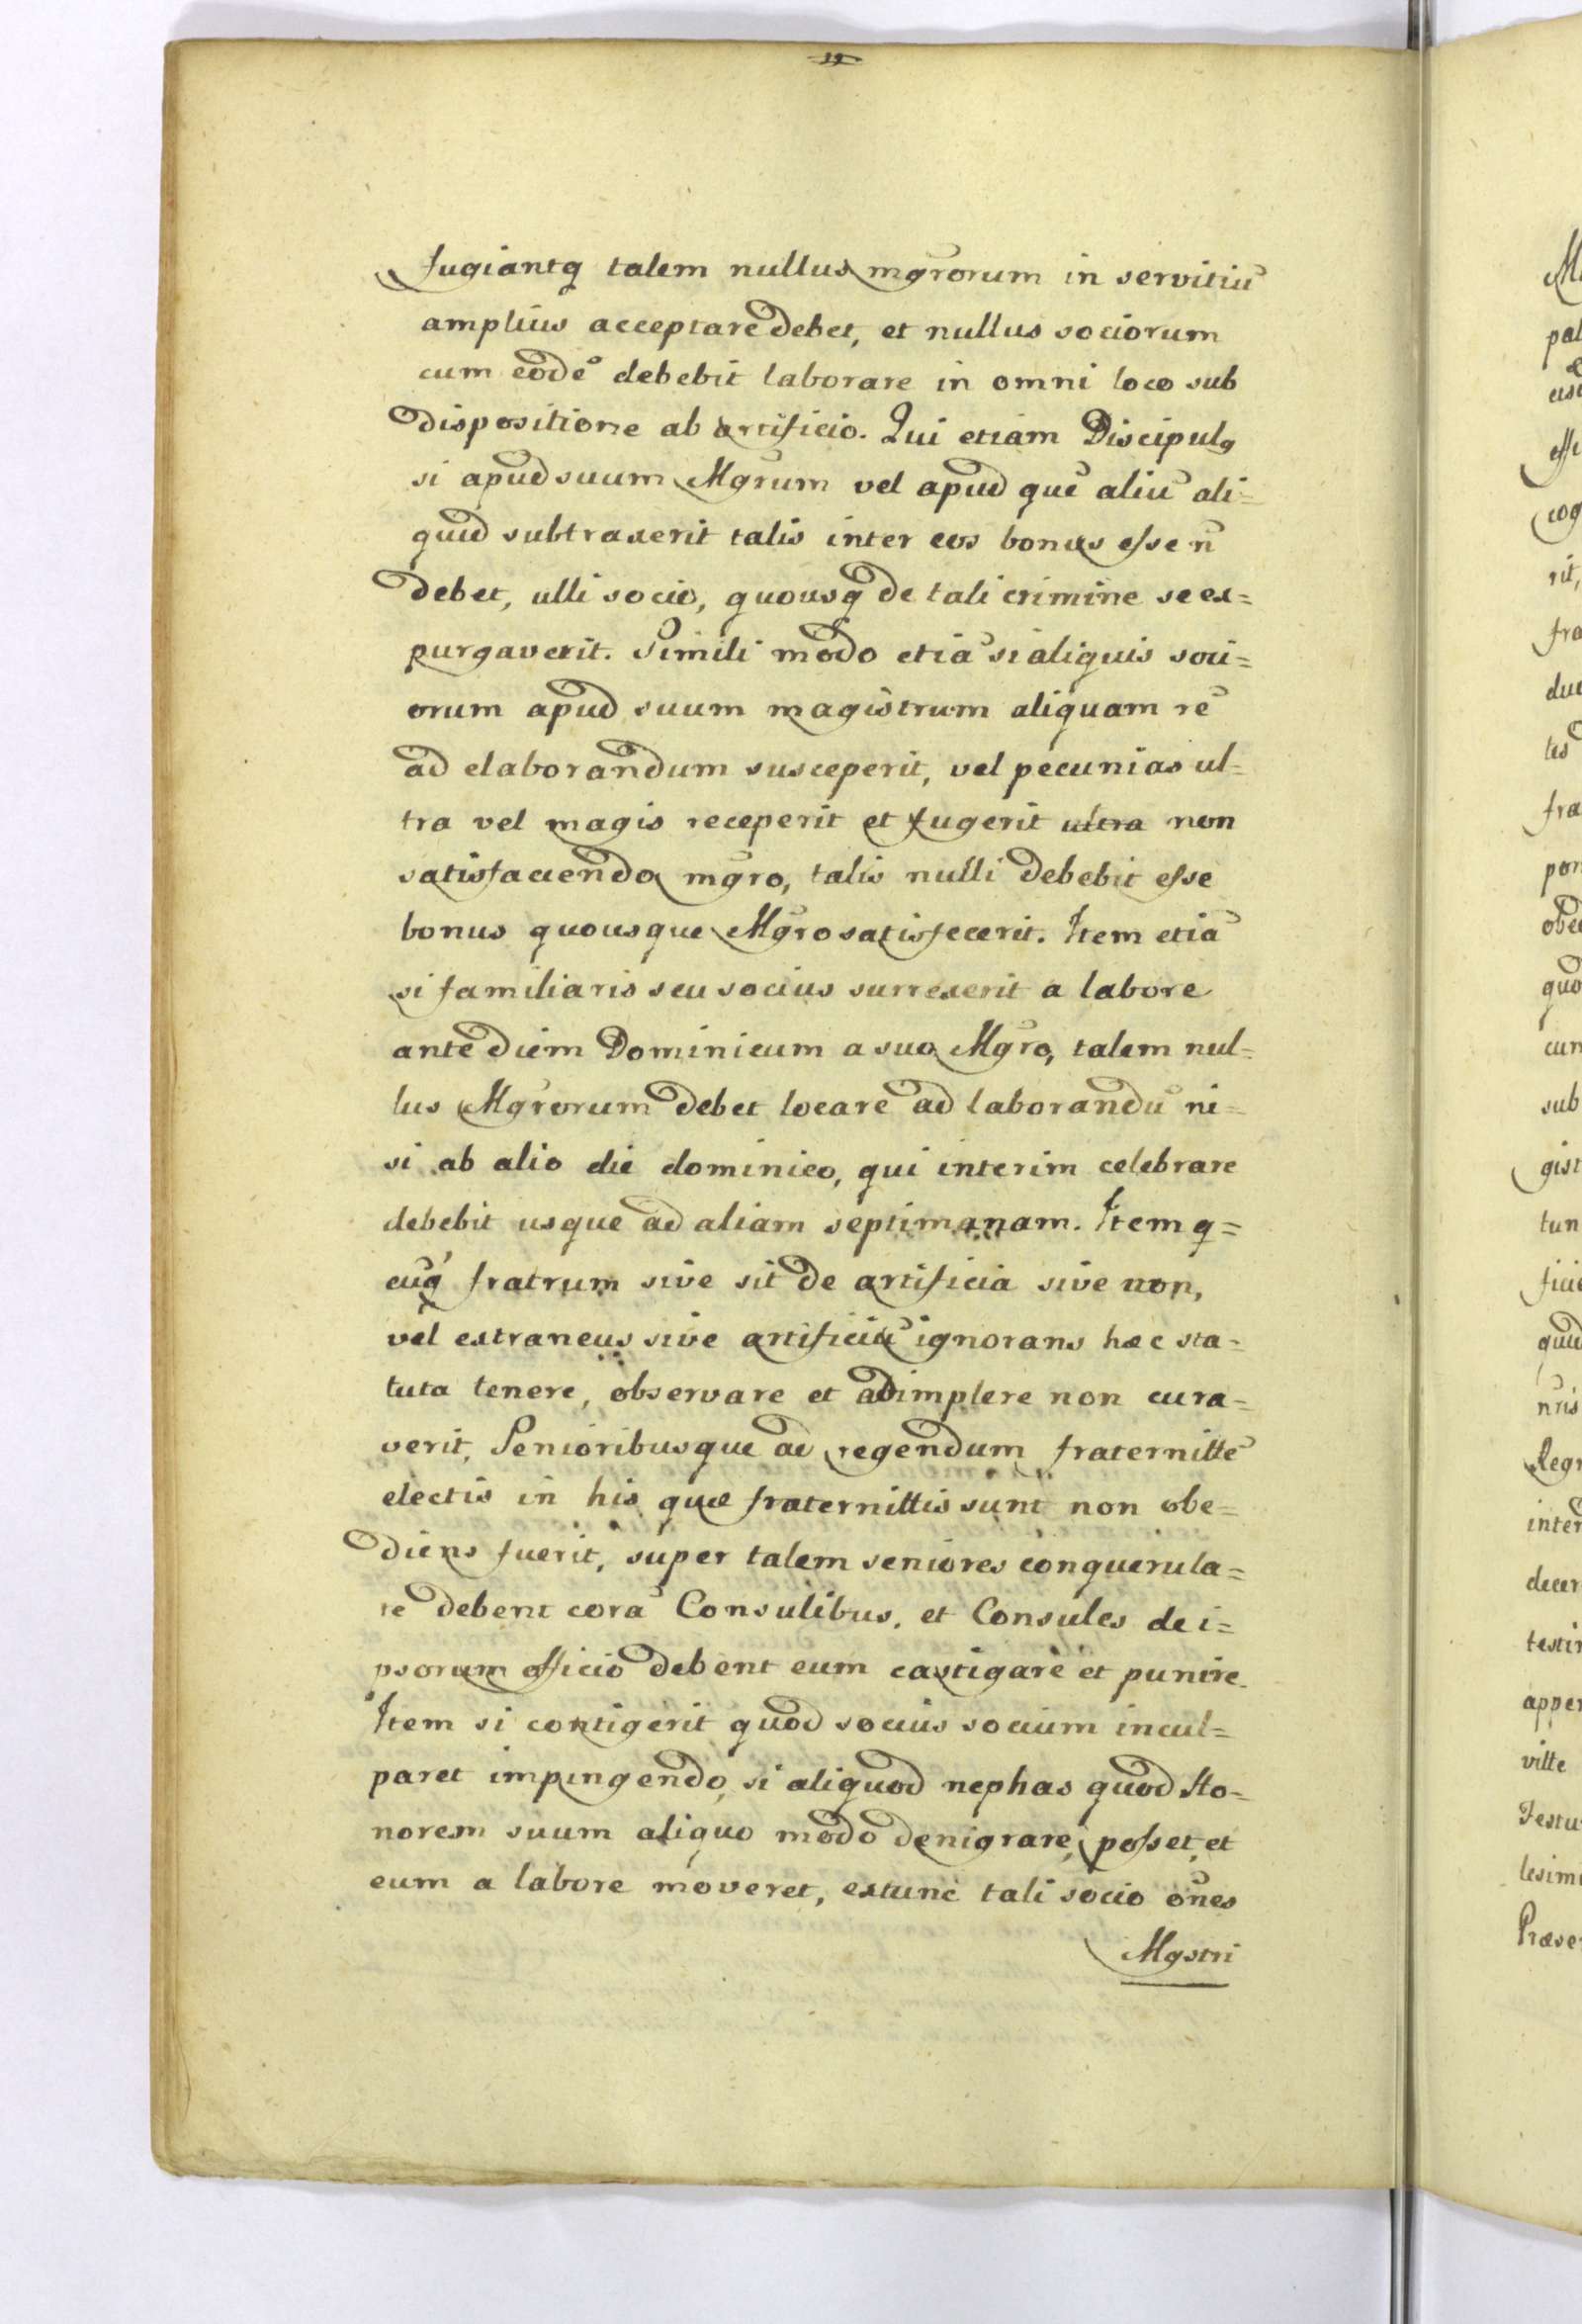 fugiantq talem nullus mgrorum in servitiū
amplius acceptare debet, et nullus sociorum
cum eodē debebit laborare in omni loco sub
dispositione ab artificio. Qui etiam Discipulq
si apud suum Mgrum vel apud quē aliū ali=
quid subtraxerit talis inter eos bonus esse n̄
debet, ulli socio, quousq de tali crimine se ex=
purgaverit. Simili modo etiā si aliquis soci=
orum apud suum magistrum aliquam rē
ad elaborandum susceperit, vel pecunias ul=
tra vel magis receperit et fugerit ultra non
satisfaciendo mgro, talis nulli debebit esse
bonus quousque Mgro satisfecerit. Item etiā
si familiaris seu socius surrexerit a labore
ante diem Dominicum a suo Mgro, talem nul=
lus Mgrorum debet locare ad laborandū ni=
si ab alio die dominico, qui interim celebrare
debebit usque ad aliam septimanam. Item q=
cuq fratrum sive sit de artificia sive non,
vel extraneus sive artificiū ignorans hæc sta=
tuta tenere, observare et adimplere non cura=
verit, Senioribusque ad regendum fraternittē
electis in his quæ fraternittis sunt non obe=
diens fuerit, super talem seniores conquerula=
re debent corā Consulibus, et Consules de i=
psorum officio debent eum castigare et punire.
Item si contigerit quod socius socium incul=
paret impingendo, si aliquod nephas quod Ho=
norem suum aliquo modo denigrare, posset, et
eum a labore moveret, extunc tali socio ōnes
Mgstri